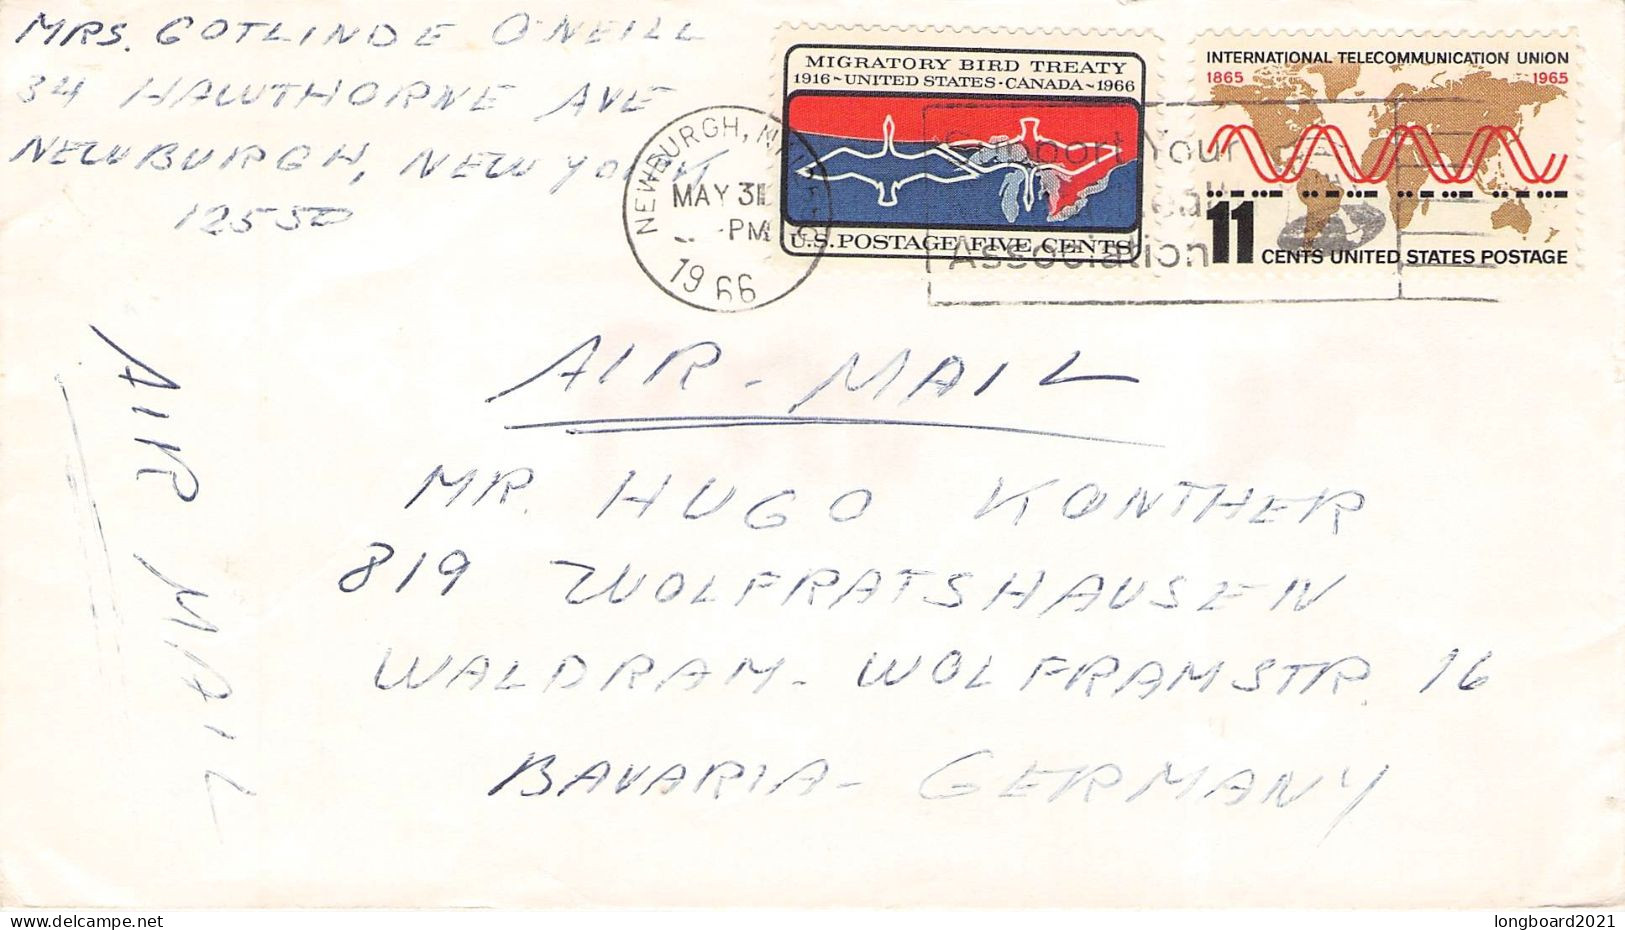 MRS. GOTLINDE O'NEILL
34 HAWTHORNE AVE
NEWBURGH, NEW YORK
12550
NEWBURGH, N.Y.
MAY 31
PM
1966
MIGRATORY BIRD TREATY
1916~UNITED STATES·CANADA~1966
U.S. POSTAGE FIVE CENTS
Support Your
Association
INTERNATIONAL TELECOMMUNICATION UNION
1865 1965
11 CENTS UNITED STATES POSTAGE
AIR-MAIL
AIR MAIL
MR. HUGO KONTHER
819 WOLFRATSHAUSEN
WALDRAM-WOLFRAMSTR 16
BAVARIA-GERMANY
longboard2021